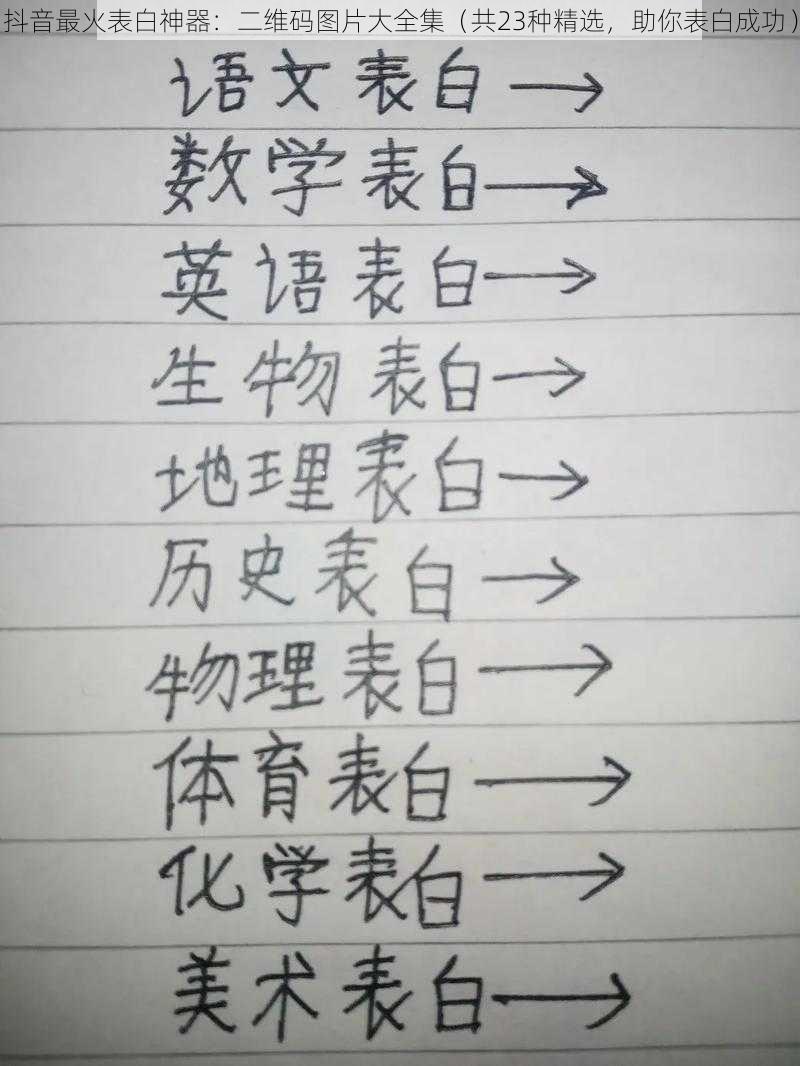 抖音最火表白神器：二维码图片大全集（共23种精选，助你表白成功）
语文表白→
数学表白→
英语表白→
生物表白→
地理表白→
历史表白→
物理表白→
体育表白→
化学表白→
美术表白→